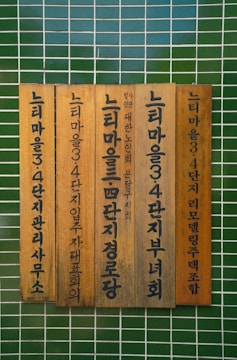 느티마을3·4단지관리사무소
느티마을3·4단지입주자대표회의
대한노인회 분당구지회
느티마을三·四단지경로당
느티마을3·4단지부녀회
느티마을3·4단지 리모델링주택조합